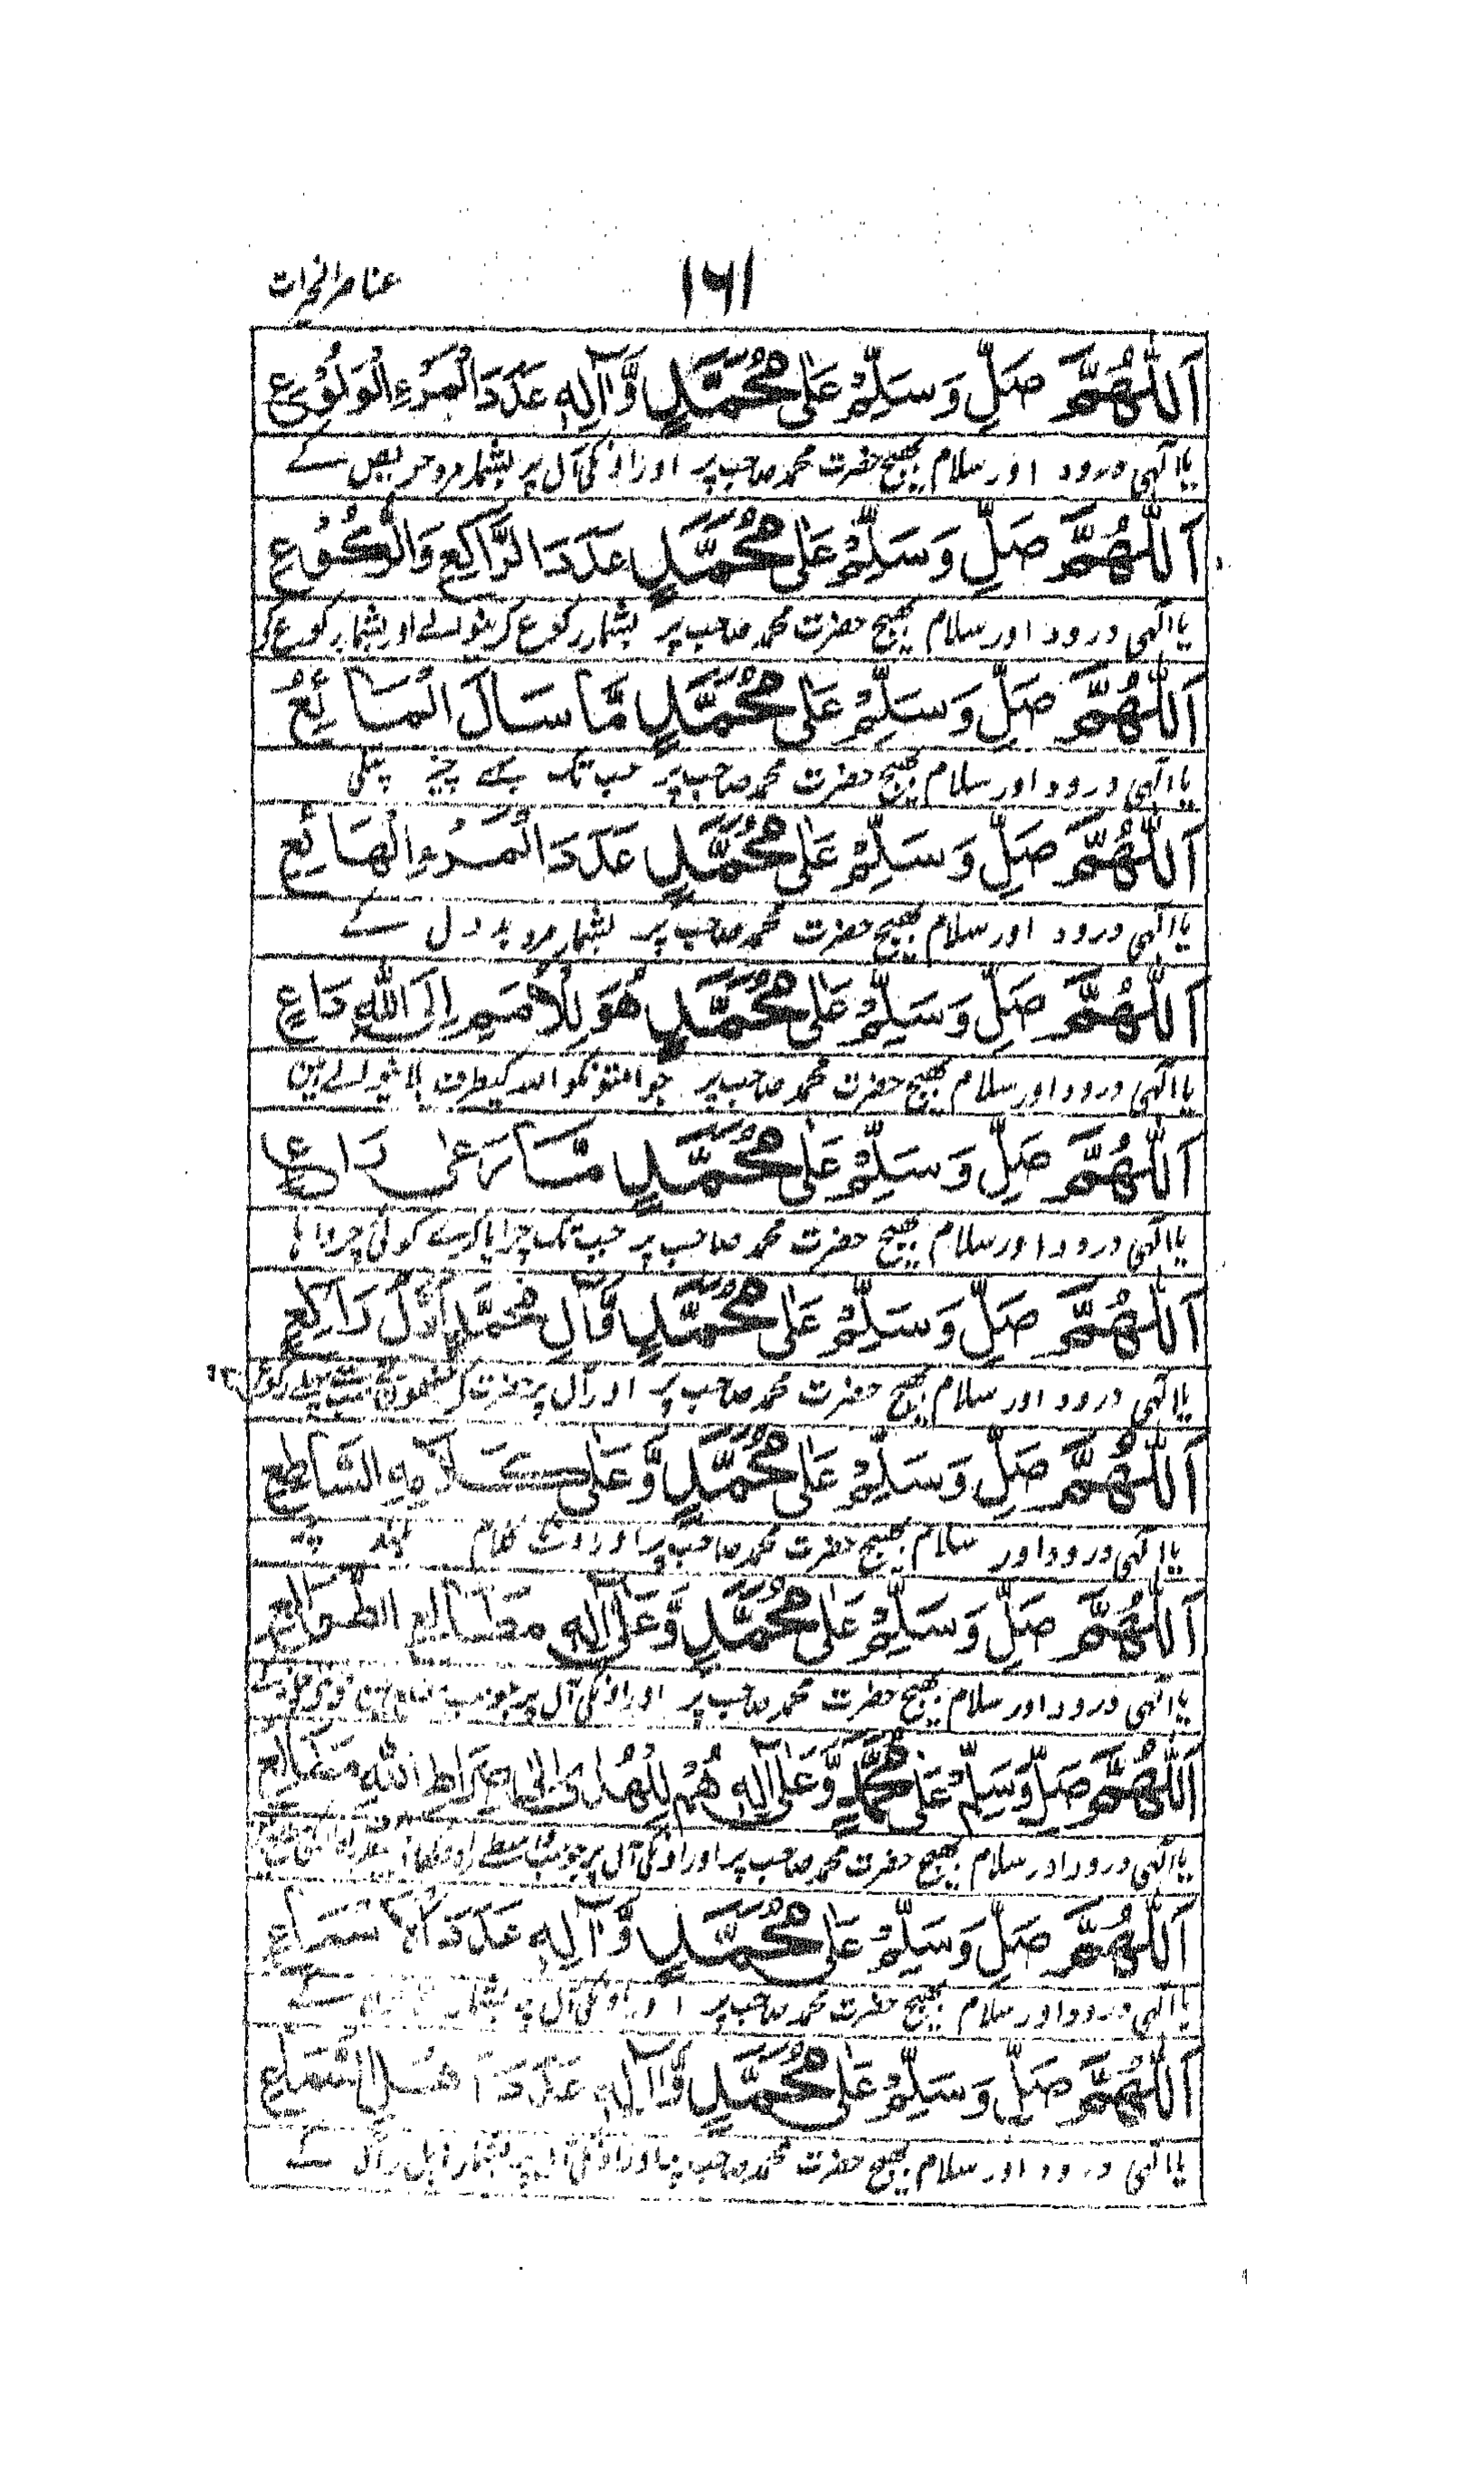 عناصر الخیرات
۱۶۱
اَللّٰهُمَّ صَلِّ وَسَلِّمْ عَلٰى مُحَمَّدٍ وَّاٰلِهٖ عَدَدَ الْمَرْءِ الْوَلُوْعِ
یا الٰہی درود اور سلام بھیج حضرت محمد صاحب پر اور اونکی آل پر بشمار مرد حریص کے
اَللّٰهُمَّ صَلِّ وَسَلِّمْ عَلٰى مُحَمَّدٍ عَدَدَ الرَّاكِعِ وَالرُّكُوْعِ
یا الٰہی درود اور سلام بھیج حضرت محمد صاحب پر بشمار رکوع کرنیوالے اور بشمار رکوع کے
اَللّٰهُمَّ صَلِّ وَسَلِّمْ عَلٰى مُحَمَّدٍ مَّا سَالَ الْمَائِعُ
یا الٰہی درود اور سلام بھیج حضرت محمد صاحب پر جب تک بہے چیز پتلی
اَللّٰهُمَّ صَلِّ وَسَلِّمْ عَلٰى مُحَمَّدٍ عَدَدَ الْمَرْءِ الْهَائِعِ
یا الٰہی درود اور سلام بھیج حضرت محمد صاحب پر بشمار مرد بد دل کے
اَللّٰهُمَّ صَلِّ وَسَلِّمْ عَلٰى مُحَمَّدٍ هُوَ لِلْاُمَمِ اِلَى اللّٰهِ دَاعٍ
یا الٰہی درود اور سلام بھیج حضرت محمد صاحب پر جو امتونکو اللہ کیطرف بلانیوالے ہین
اَللّٰهُمَّ صَلِّ وَسَلِّمْ عَلٰى مُحَمَّدٍ مَّا رَعٰى رَاعٍ
یا الٰہی درود اور سلام بھیج حضرت محمد صاحب پر جب تک چرایا کرے کوئی چرواہا
اَللّٰهُمَّ صَلِّ وَسَلِّمْ عَلٰى مُحَمَّدٍ وَّاٰلِ مُحَمَّدٍ اَوَّلُ رَاكِعٍ
یا الٰہی درود اور سلام بھیج حضرت محمد صاحب پر اور آل پر حضرت کے سب سے پہلے
اَللّٰهُمَّ صَلِّ وَسَلِّمْ عَلٰى مُحَمَّدٍ وَّعَلٰى كَلَامِهِ السَّاطِعِ
یا الٰہی درود اور سلام بھیج حضرت محمد صاحب پر اور اونکے کلام بلند پر
اَللّٰهُمَّ صَلِّ وَسَلِّمْ عَلٰى مُحَمَّدٍ وَّعَلٰى اٰلِهٖ مَطَالِعِ الطَّوَالِعِ
یا الٰہی درود اور سلام بھیج حضرت محمد صاحب پر اور اونکی آل پر جو سب
اَللّٰهُمَّ صَلِّ وَسَلِّمْ عَلٰى مُحَمَّدٍ وَّعَلٰى اٰلِهٖ هُمْ لِلْهُدٰى اِلٰى صِرَاطِ اللّٰهِ
یا الٰہی درود اور سلام بھیج حضرت محمد صاحب پر اور اونکی آل پر جو سب واسطے
اَللّٰهُمَّ صَلِّ وَسَلِّمْ عَلٰى مُحَمَّدٍ وَّاٰلِهٖ عَدَدَ
یا الٰہی درود اور سلام بھیج حضرت محمد صاحب پر اور اونکی آل پر بشمار کے
اَللّٰهُمَّ صَلِّ وَسَلِّمْ عَلٰى مُحَمَّدٍ وَّاٰلِهٖ عَدَدَ اَهْلِ السَّمَاعِ
یا الٰہی درود اور سلام بھیج حضرت محمد صاحب پر اور اونکی آل پر بشمار اہل راگ کے